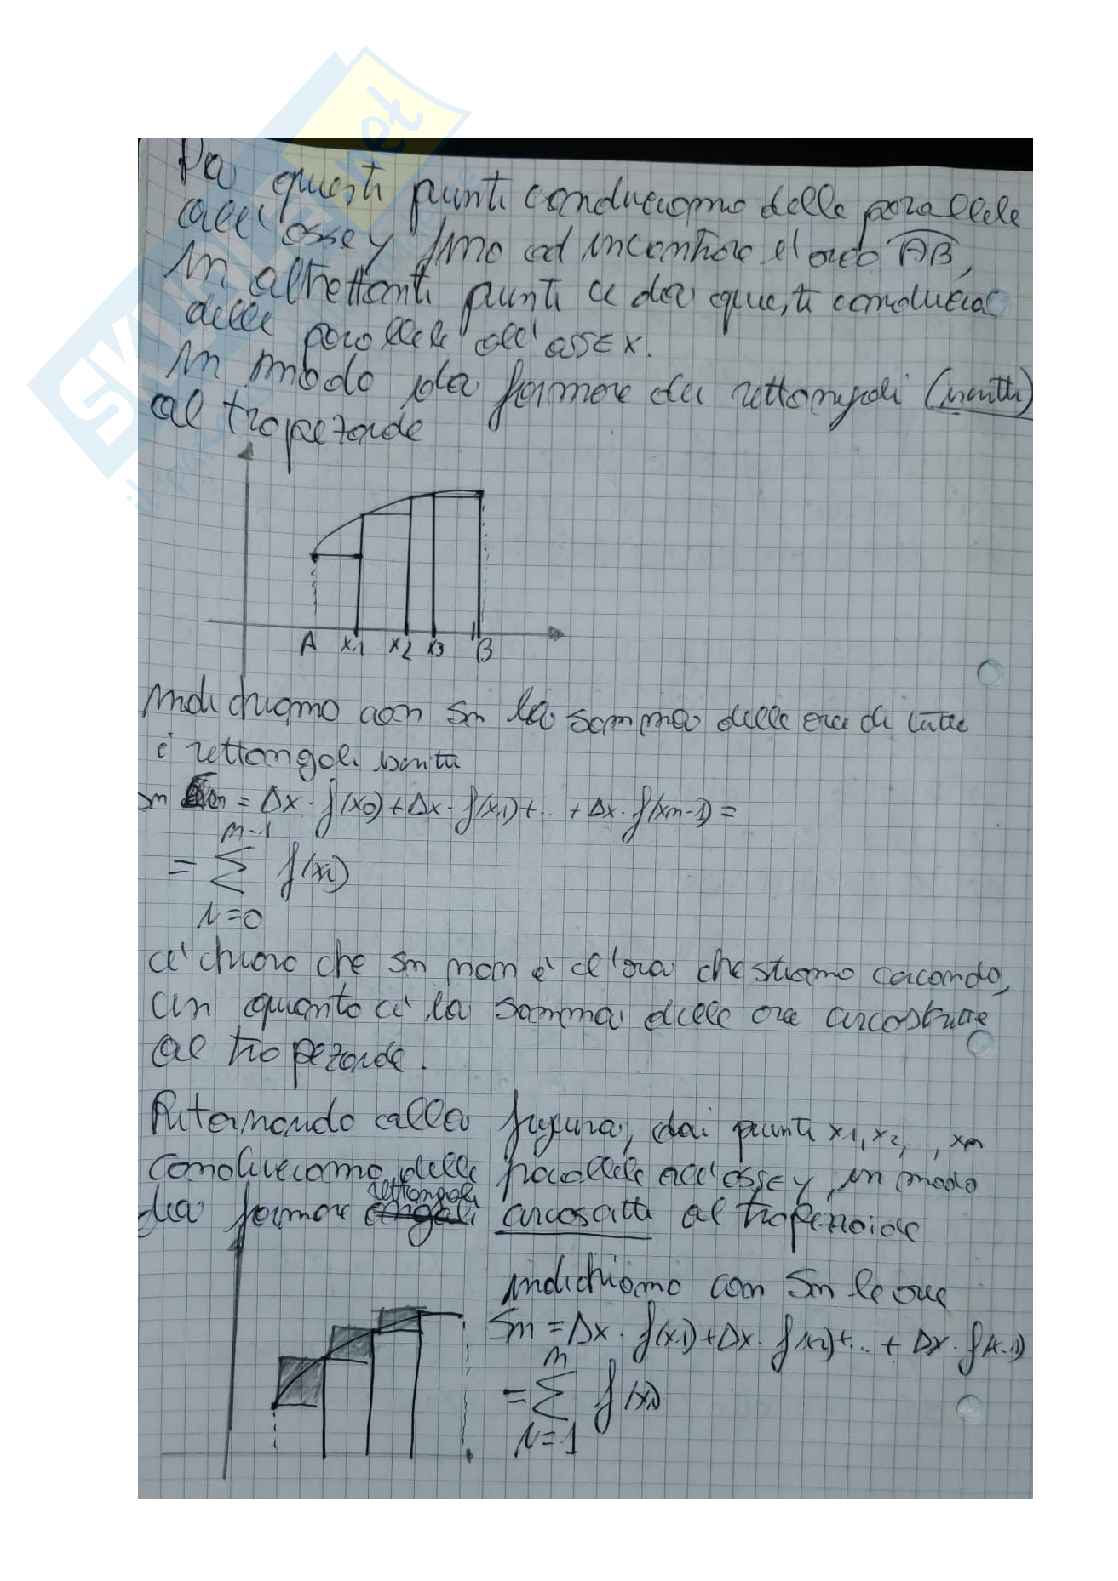 Da questi punti conduciamo delle parallele
all'asse y fino ad incontrare l'arco AB,
in altrettanti punti e da questi conducia
delle parallele all'asse x.
in modo da formare dei rettangoli (inscritti)
al trapezoide
A x1 x2 x3 B
indichiamo con Sn la somma delle aree di tutti
i rettangoli inscritti
Sn = Δx · f(x0) + Δx · f(x1) + ... + Δx · f(xn-1) =
n-1
= Σ f(xi)
i=0
è chiaro che Sn non è l'area che stiamo cercando,
in quanto è la somma delle aree
al trapezoide.
Ritornando alla figura, dai punti x1, x2, , xn
conduciamo delle parallele all'asse y, in modo
rettangoli
da formare circoscritti al trapezoide
indichiamo con Sn le aree
Sn = Δx · f(x1) + Δx · f(x2) + ... + Δx ·
n
= Σ f(xi)
i=1
SKUOLA.net